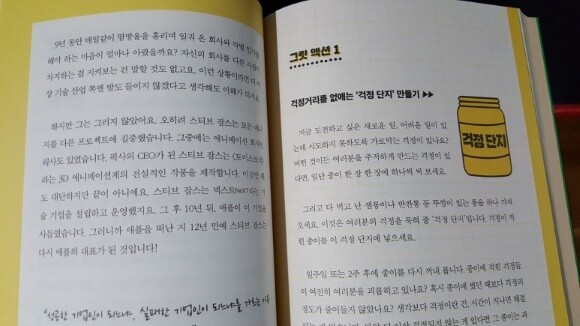 9년 동안 매일같이 땀방울을 흘리며 일궈 온 회사와 작별 인사를
해야 하는 마음이 얼마나 아팠을까요? 자신의 회사를 다른 사람이
차지하는 걸 지켜보는 건 말할 것도 없고요. 이런 상황이라면 다시
상 기술 산업 쪽엔 발도 들이지 않겠다고 생각해도 이해가 되지요
하지만 그는 그러지 않았어요. 오히려 스티브 잡스는 모든 에너
지를 다른 프로젝트에 집중했습니다. 그중에는 애니메이션 회사
픽사도 있었습니다. 픽사의 CEO가 된 스티브 잡스는 〈토이 스토리〉
라는 3D 애니메이션계의 전설적인 작품을 제작합니다. 이것만 해
도 대단하지만 끝이 아니에요. 스티브 잡스는 넥스트(NeXT)라는 기
술 기업을 설립하고 운영했지요. 그 후 10년 뒤, 애플이 이 기업을
사들였습니다. 그러니까 애플을 떠난 지 12년 만에 스티브 잡스는
다시 애플의 대표가 된 것입니다!
"성공한 기업인이 되느냐, 실패한 기업인이 되느냐를 가르는
그릿 액션 1
걱정거리를 없애는 '걱정 단지' 만들기 ▶▶
걱정 단지
지금 도전하고 싶은 새로운 일, 어려운 일이 있
는데 시도하지 못하도록 가로막는 걱정이 있나요?
어떤 것이든 여러분을 주저하게 만드는 걱정이 있
다면, 일단 종이 한 장 한 장에 하나씩 써 보세요.
그리고 다 먹고 난 잼통이나 반찬통 등 뚜껑이 있는 통을 하나 가져
오세요. 이것은 여러분의 걱정을 묵혀 줄 '걱정 단지'입니다. 걱정이 적
힌 종이를 이 걱정 단지에 넣으세요.
일주일 또는 2주 후에 종이를 다시 꺼내 봅니다. 종이에 적힌 걱정들
이 여전히 여러분을 괴롭히고 있나요? 혹시 종이에 썼던 때보다 걱정의
정도가 줄어들지 않았나요? 생각보다 걱정이란 건, 시간이 지나면 해결